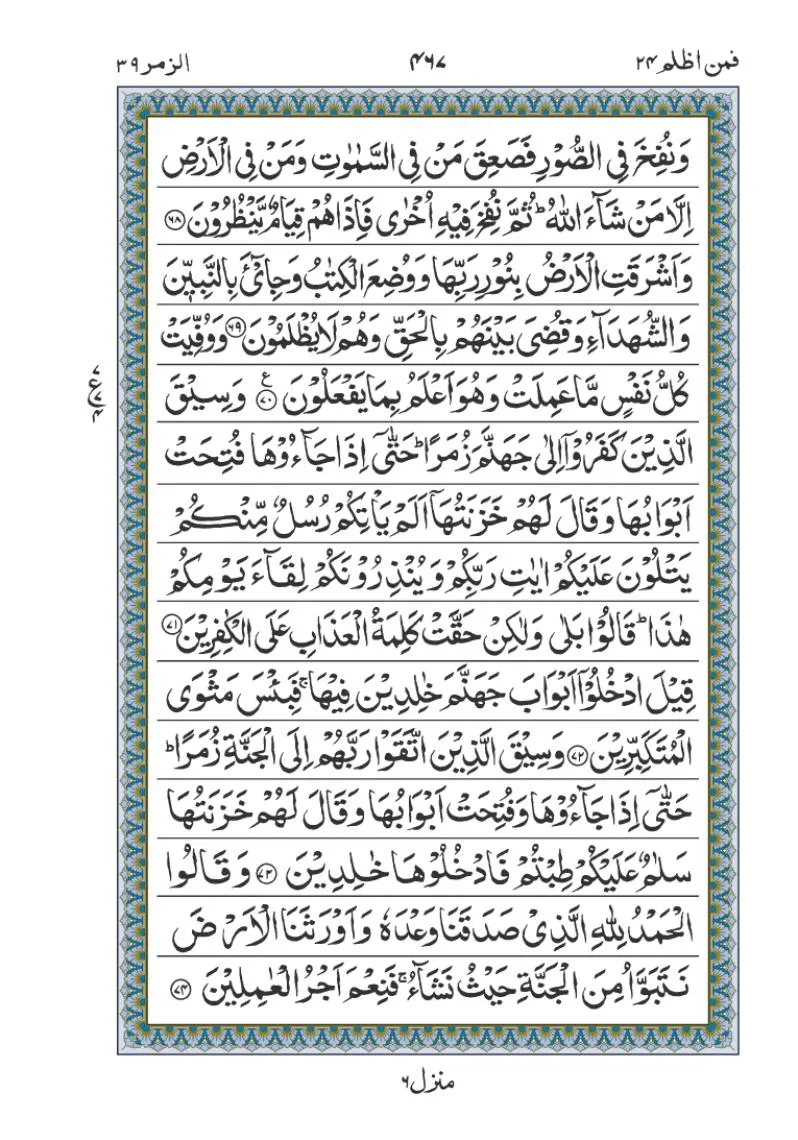 فمن اظلم ۲۴
۴۶۷
الزمر ۳۹
وَنُفِخَ فِي الصُّوْرِ فَصَعِقَ مَنْ فِي السَّمٰوٰتِ وَمَنْ فِي الْاَرْضِ
اِلَّا مَنْ شَآءَ اللّٰهُ ؕ ثُمَّ نُفِخَ فِيْهِ اُخْرٰى فَاِذَا هُمْ قِيَامٌ يَّنْظُرُوْنَ ﴿۶۸﴾
وَاَشْرَقَتِ الْاَرْضُ بِنُوْرِ رَبِّهَا وَوُضِعَ الْكِتٰبُ وَجِايْٓءَ بِالنَّبِيّٖنَ
وَالشُّهَدَآءِ وَقُضِيَ بَيْنَهُمْ بِالْحَقِّ وَهُمْ لَا يُظْلَمُوْنَ ﴿۶۹﴾ وَوُفِّيَتْ
كُلُّ نَفْسٍ مَّا عَمِلَتْ وَهُوَ اَعْلَمُ بِمَا يَفْعَلُوْنَ ﴿۷۰﴾ ع وَسِيْقَ
الَّذِيْنَ كَفَرُوْٓا اِلٰى جَهَنَّمَ زُمَرًا ؕ حَتّٰٓى اِذَا جَآءُوْهَا فُتِحَتْ
اَبْوَابُهَا وَقَالَ لَهُمْ خَزَنَتُهَآ اَلَمْ يَاْتِكُمْ رُسُلٌ مِّنْكُمْ
يَتْلُوْنَ عَلَيْكُمْ اٰيٰتِ رَبِّكُمْ وَيُنْذِرُوْنَكُمْ لِقَآءَ يَوْمِكُمْ
هٰذَا ؕ قَالُوْا بَلٰى وَلٰكِنْ حَقَّتْ كَلِمَةُ الْعَذَابِ عَلَى الْكٰفِرِيْنَ ﴿۷۱﴾
قِيْلَ ادْخُلُوْٓا اَبْوَابَ جَهَنَّمَ خٰلِدِيْنَ فِيْهَا ۚ فَبِئْسَ مَثْوَى
الْمُتَكَبِّرِيْنَ ﴿۷۲﴾ وَسِيْقَ الَّذِيْنَ اتَّقَوْا رَبَّهُمْ اِلَى الْجَنَّةِ زُمَرًا ؕ
حَتّٰٓى اِذَا جَآءُوْهَا وَفُتِحَتْ اَبْوَابُهَا وَقَالَ لَهُمْ خَزَنَتُهَا
سَلٰمٌ عَلَيْكُمْ طِبْتُمْ فَادْخُلُوْهَا خٰلِدِيْنَ ﴿۷۳﴾ وَقَالُوا
الْحَمْدُ لِلّٰهِ الَّذِيْ صَدَقَنَا وَعْدَهٗ وَاَوْرَثَنَا الْاَرْضَ
نَتَبَوَّاُ مِنَ الْجَنَّةِ حَيْثُ نَشَآءُ ۚ فَنِعْمَ اَجْرُ الْعٰمِلِيْنَ ﴿۷۴﴾
۷ ع ۴
منزل ۶